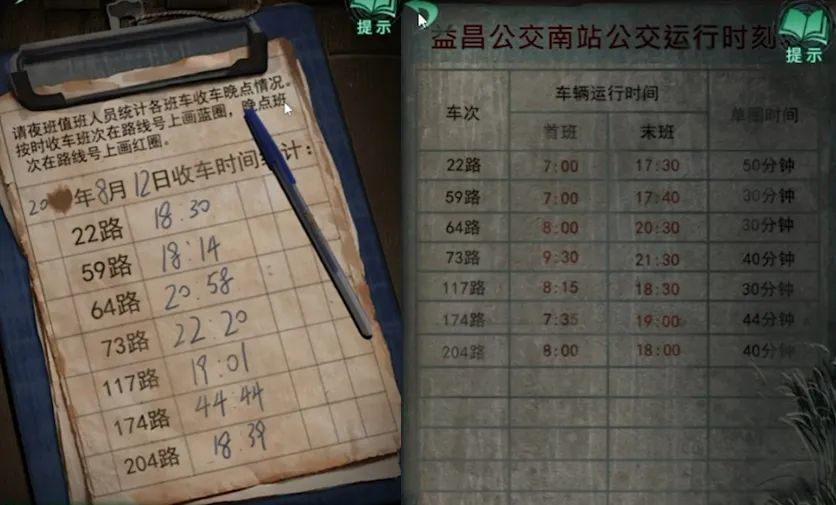 提示
请夜班值班人员统计各班车收车晚点情况。
按时收车班次在路线号上画蓝圈，晚点班
次在路线号上画红圈。
20 年8月12日收车时间 计：
22路 18:30
59路 18:14
64路 20:58
73路 22:20
117路 19:01
174路 44:44
204路 18:39
益昌公交南站公交运行时刻
提示
车次 车辆运行时间 单圈时间
首班 末班
22路 7:00 17:30 50分钟
59路 7:00 17:40 30分钟
64路 8:00 20:30 30分钟
73路 9:30 21:30 40分钟
117路 8:15 18:30 30分钟
174路 7:35 19:00 44分钟
204路 8:00 18:00 40分钟